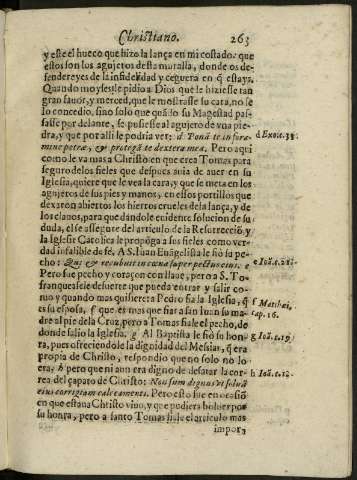 Christiano. 263
y este el hueco que hizo la lança en mi costado: que
estos son los agujeros desta muralla, donde os de-
fendereys de la infidelidad y ceguera en q̃ estays.
Quando moyses le pidio a Dios que le hiziesse tan
gran fauor, y merced, que le mostrasse su cara, no se
lo concedio, sino solo que quãdo su Magestad pas-
sasse por delante, se pusiesse al agujero de vna pie-
dra, y que por alli le podria ver: d Ponã te in fora-
mine petræ, & protegã te dextera mea. Pero aqui
como le va mas a Christo en que crea Tomas para
seguro de los fieles que despues auia de auer en su
Iglesia, quiere que le vea la cara, y que se meta en los
agujeros de sus pies y manos, en essos portillos que
dexaron abiertos los hierros crueles de la lança, y de
los clauos, para que dandole euidente solucion de su
duda, el se assegure del articulo de la Resurrecciõ, y
la Iglesia Catolica le propõga a sus fieles como ver-
dad infalible de fè. A S. Iuan Euãgelista le fiò su pe-
cho: Qui & recubuit in cœna super pectus eius. e
Pero fue pecho y coraçon con llaue, pero a S. To-
franqueasele de suerte que pueda entrar y salir co-
mo y quando mas quisiere: a Pedro fia la Iglesia, q̃
es su esposa, f que es mas que fiar a san Iuan su ma-
dre al pie de la Cruz, pero a Tomas fiale el pecho, de
donde salio la Iglesia. g Al Baptista le fiò su hon-
ra, pues ofreciendole la dignidad del Mesias, q̃ era
propia de Christo, respondio que no solo no lo
era, h pero que ni aun era digno de desatar la cor-
rea del çapato de Christo: Non sum dignus vt soluã
eius corrigiam calceamenti. Pero esto fue en ocasiõ
en que estaua Christo viuo, y que pudiera boluer por
su honra, pero a santo Tomas fiale el articulo mas
impor-
d Exo. c. 33.
e Ioã. c. 21.
f Matthæi,
cap. 16.
g Ioã. c. 19.
h Ioã. c. 1.